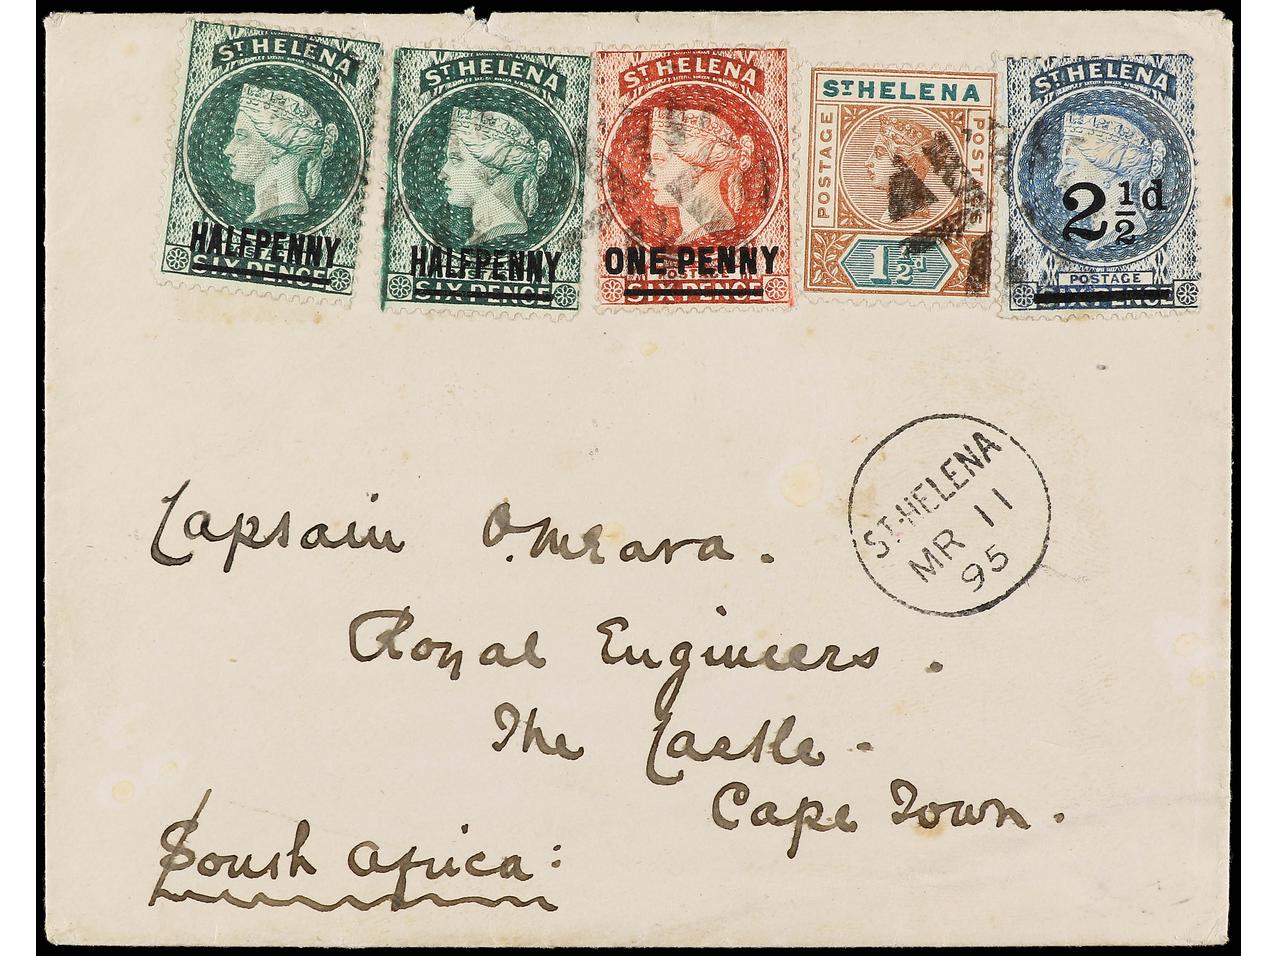 ST HELENA
HALFPENNY
SIX PENCE
ST HELENA
HALFPENNY
SIX PENCE
ST HELENA
ONE PENNY
SIX PENCE
ST HELENA
POSTAGE
POSTAGE
1½d
ST HELENA
2½d
POSTAGE
SIX PENCE
ST. HELENA
MR 11
95
Captain O'Meara.
Royal Engineers.
The Castle.
Cape Town.
South Africa: